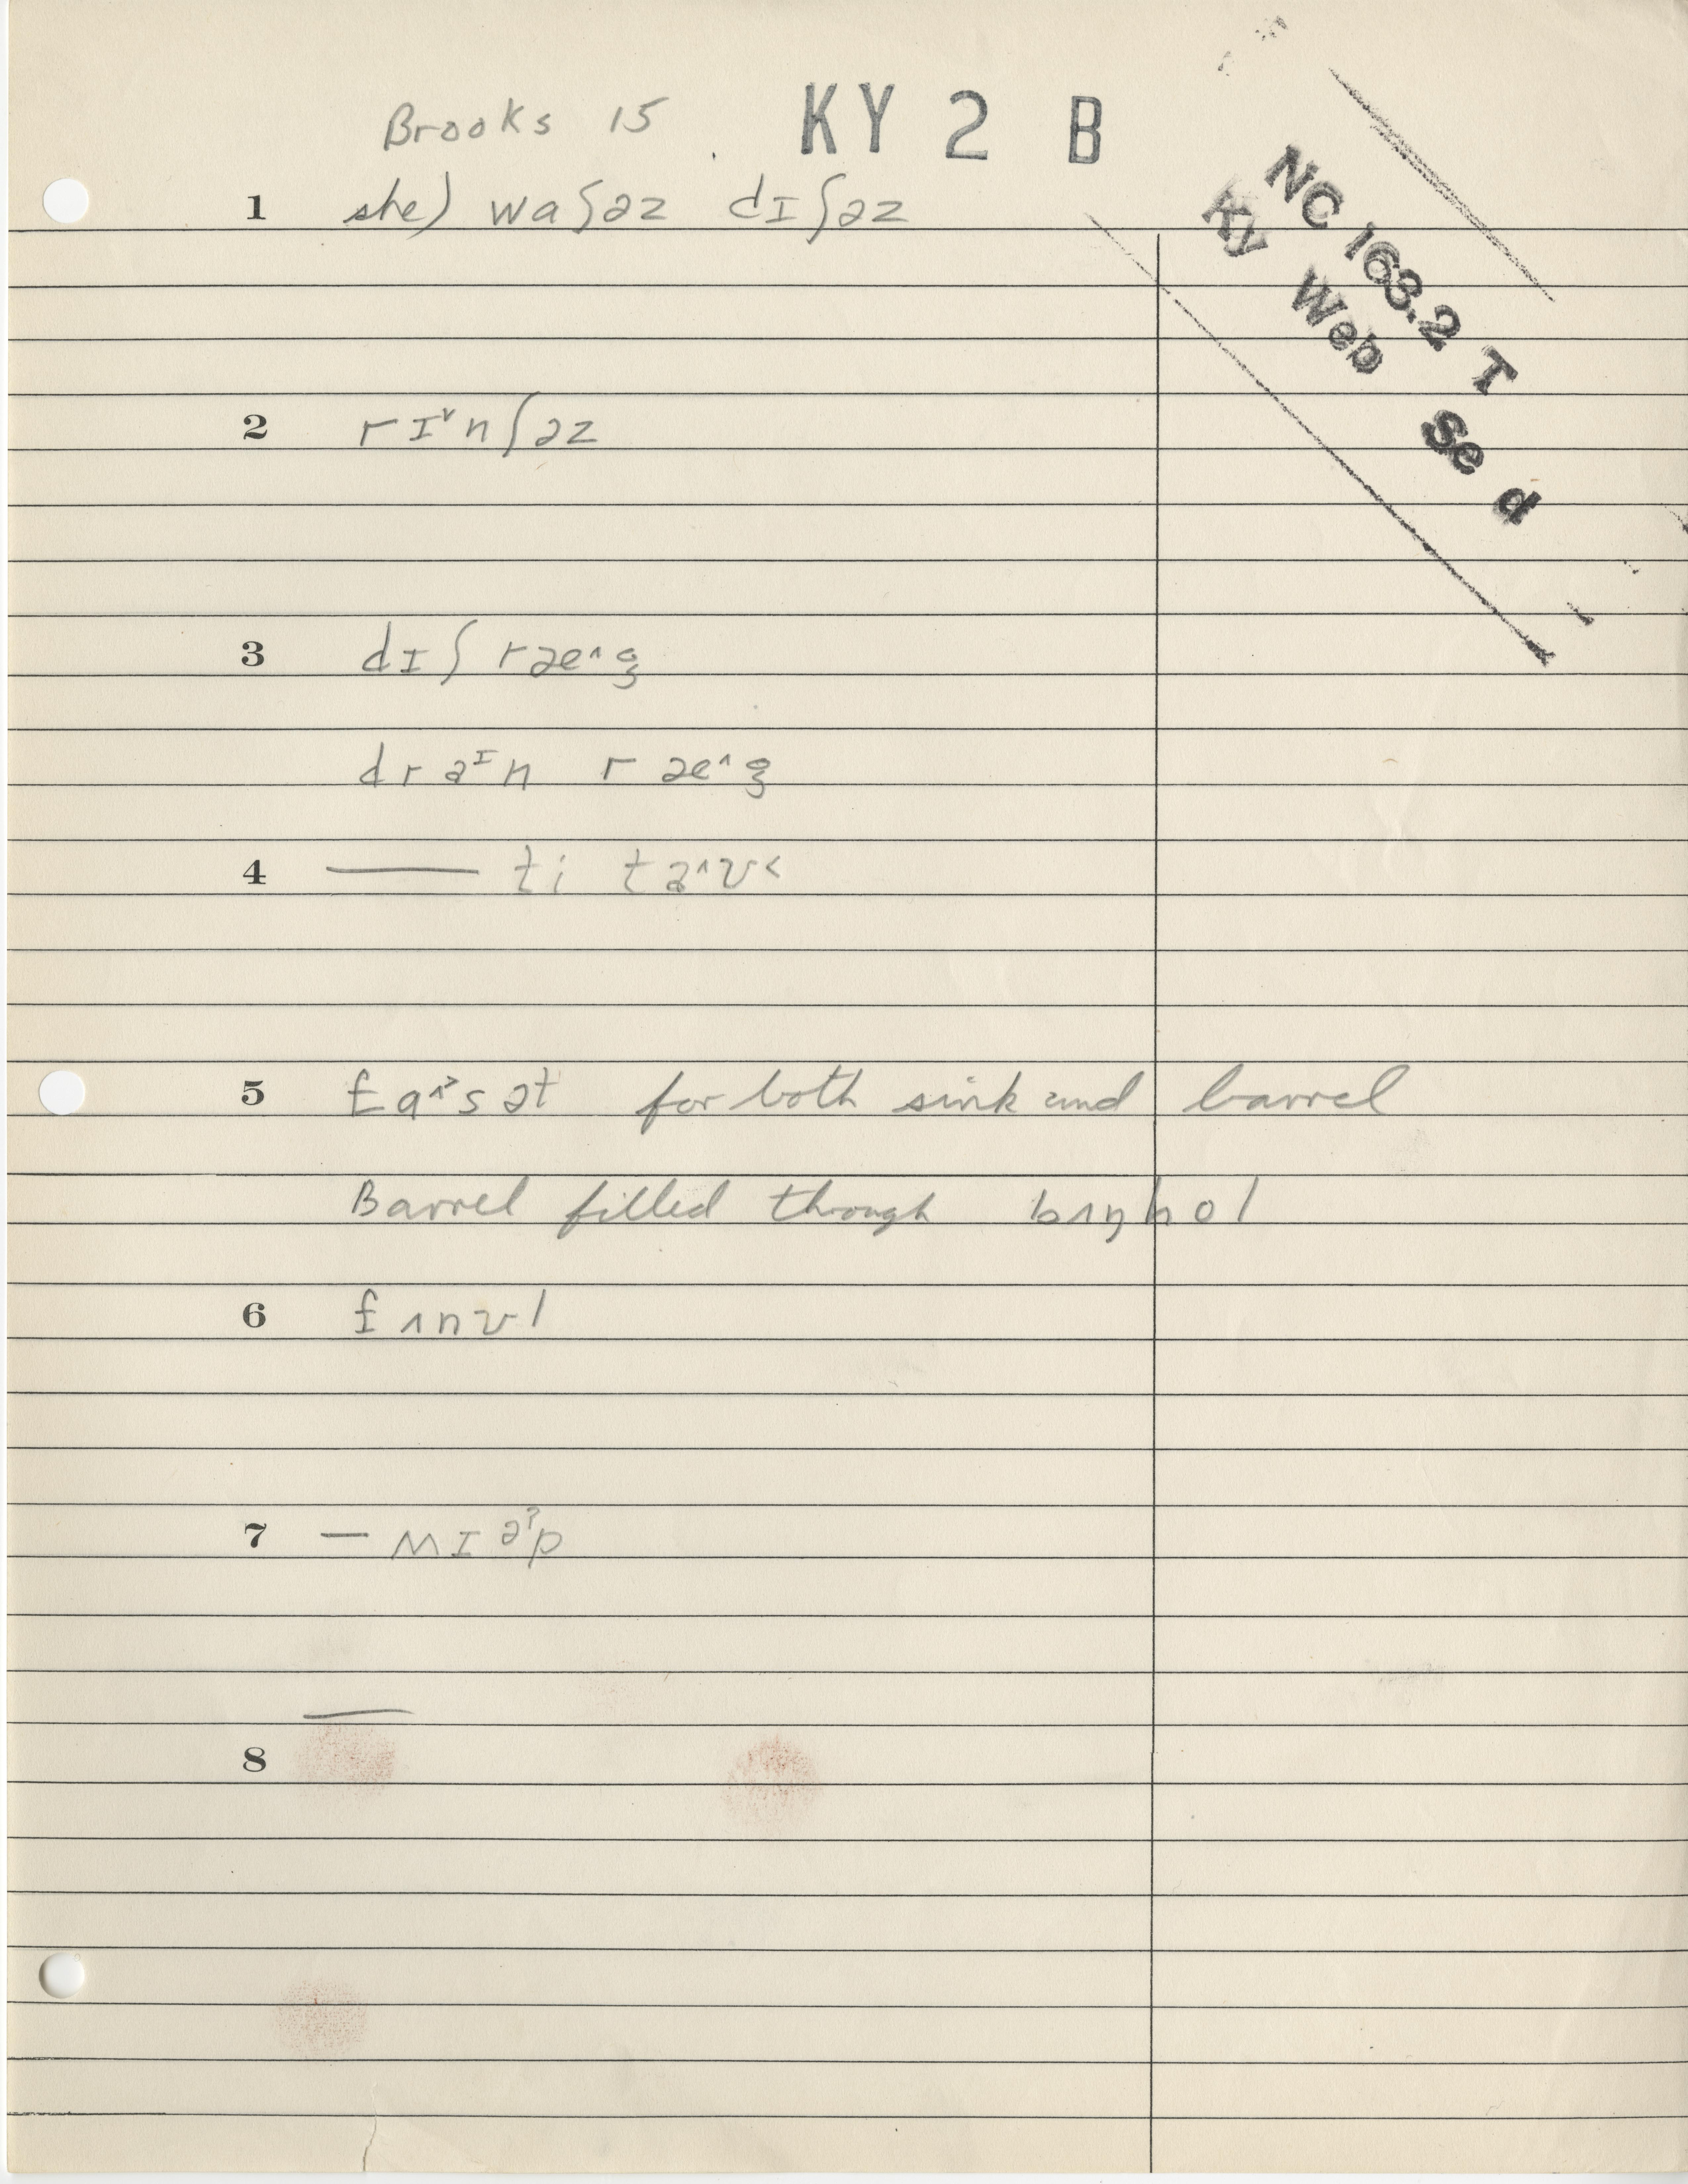 Brooks 15 KY 2 B
NC 168.2 T
Ky Web Se d
1 she) waʃəz dɪʃəz
2 rɪ˅nʃəz
3 dɪʃ ræ˄g
drəᶦn ræ˄g
4 — ti ta˄ʊ˂
5 fa˄˃sət for both sink and barrel
Barrel filled through bʌŋhol
6 fʌnʊl
7 — ʍɪəˀp
8 —